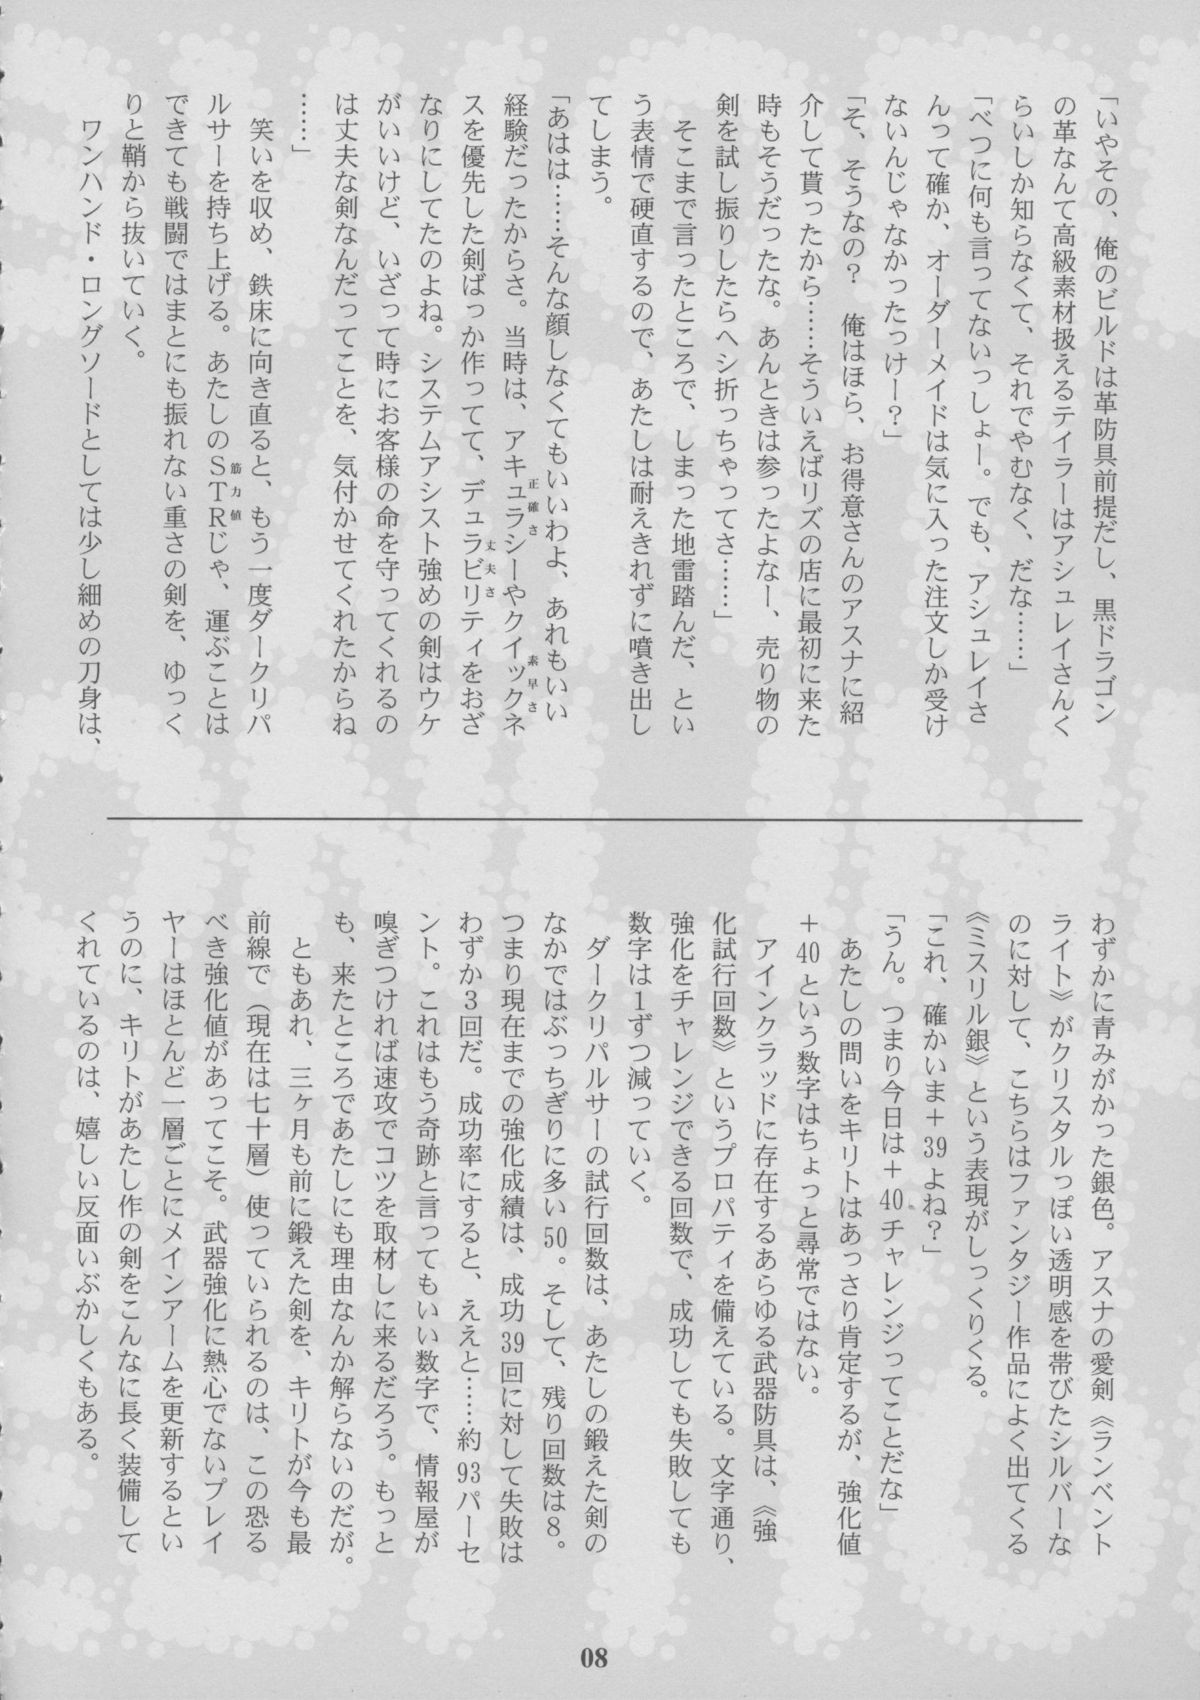 「いやその、俺のビルドは革防具前提だし、黒ドラゴン
の革なんて高級素材扱えるテイラーはアシュレイさんく
らいしか知らなくて、それでやむなく、だな……」
「べつに何も言ってないっしょー。でも、アシュレイさ
んって確か、オーダーメイドは気に入った注文しか受け
ないんじゃなかったっけー？」
「そ、そうなの？　俺はほら、お得意さんのアスナに紹
介して貰ったから……そういえばリズの店に最初に来た
時もそうだったな。あんときは参ったよなー、売り物の
剣を試し振りしたらヘシ折っちゃってさ……」
　そこまで言ったところで、しまった地雷踏んだ、とい
う表情で硬直するので、あたしは耐えきれずに噴き出し
てしまう。
「あはは……そんな顔しなくてもいいわよ、あれもいい
経験だったからさ。当時は、アキュラシー正確さやクイックネ
ス素早さを優先した剣ばっか作ってて、デュラビリティ丈夫さをおざ
なりにしてたのよね。システムアシスト強めの剣はウケ
がいいけど、いざって時にお客様の命を守ってくれるの
は丈夫な剣なんだってことを、気付かせてくれたからね
……」
　笑いを収め、鉄床に向き直ると、もう一度ダークリパ
ルサーを持ち上げる。あたしのＳＴＲ筋力値じゃ、運ぶことは
できても戦闘ではまとにも振れない重さの剣を、ゆっく
りと鞘から抜いていく。
　ワンハンド・ロングソードとしては少し細めの刀身は、
わずかに青みがかった銀色。アスナの愛剣《ランベント
ライト》がクリスタルっぽい透明感を帯びたシルバーな
のに対して、こちらはファンタジー作品によく出てくる
《ミスリル銀》という表現がしっくりくる。
「これ、確かいま＋39よね？」
「うん。つまり今日は＋40チャレンジってことだな」
　あたしの問いをキリトはあっさり肯定するが、強化値
＋40という数字はちょっと尋常ではない。
　アインクラッドに存在するあらゆる武器防具は、《強
化試行回数》というプロパティを備えている。文字通り、
強化をチャレンジできる回数で、成功しても失敗しても
数字は１ずつ減っていく。
　ダークリパルサーの試行回数は、あたしの鍛えた剣の
なかではぶっちぎりに多い50。そして、残り回数は８。
つまり現在までの強化成績は、成功39回に対して失敗は
わずか３回だ。成功率にすると、ええと……約93パーセ
ント。これはもう奇跡と言ってもいい数字で、情報屋が
嗅ぎつければ速攻でコツを取材しに来るだろう。もっと
も、来たところであたしにも理由なんか解らないのだが。
　ともあれ、三ヶ月も前に鍛えた剣を、キリトが今も最
前線で（現在は七十層）使っていられるのは、この恐る
べき強化値があってこそ。武器強化に熱心でないプレイ
ヤーはほとんど一層ごとにメインアームを更新するとい
うのに、キリトがあたし作の剣をこんなに長く装備して
くれているのは、嬉しい反面いぶかしくもある。
08